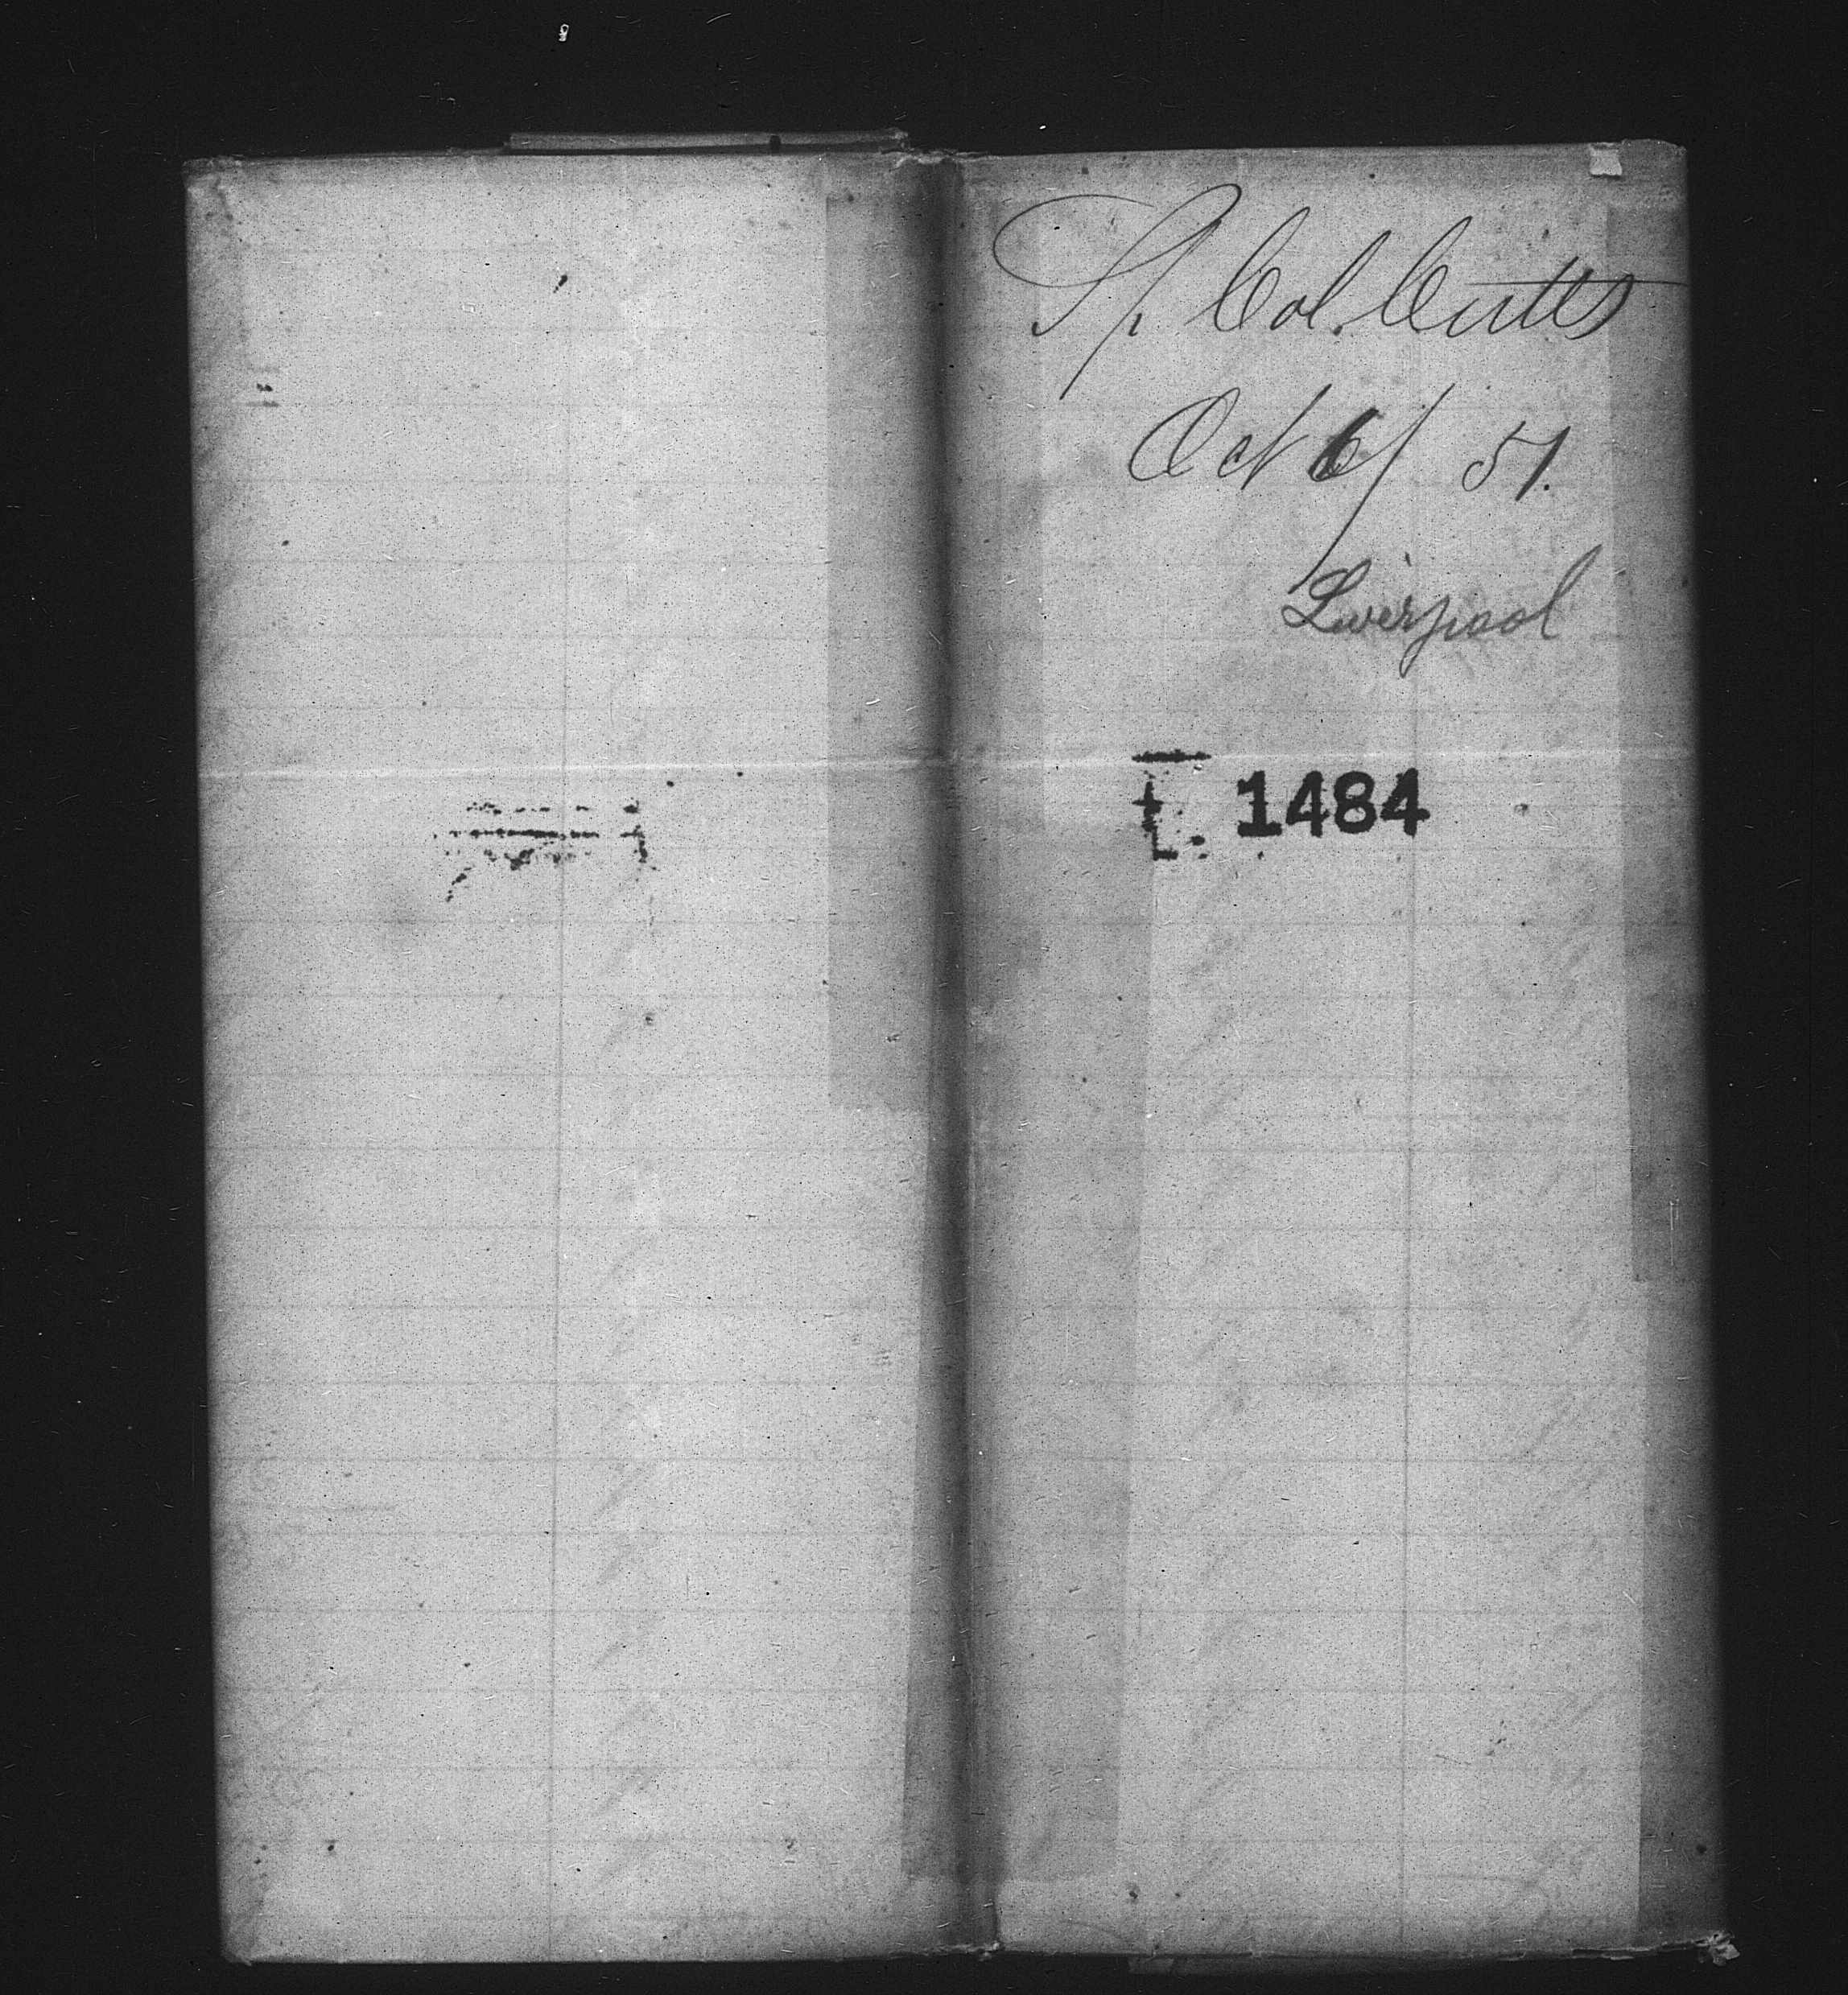 Sp. Col. Cutts
Oct 6/ 51.
Liverpool
1484